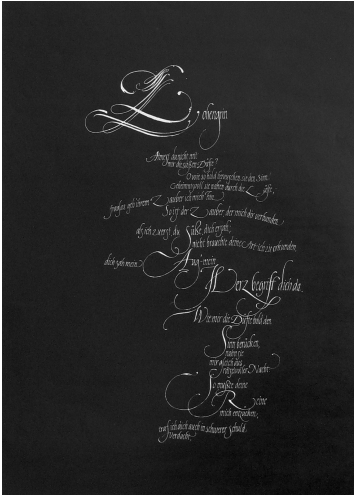 Lohengrin
Atmest du nicht mit
mir die süßen Düfte?
O wie so hold berauschen sie den Sinn
Geheimnisvoll sie nahen durch die Lüfte,
fraglos geb ihrem Zauber ich mich hin.
So ist der Zauber der mich dir verbunden,
als ich zuerst, du Süße, dich ersah;
nicht brauchte deine Art ich zu erkunden,
dich sah mein
Aug mein
Herz begriff dich da.
Wie mir die Düfte hold den
Sinn berücken,
nahen sie
mir gleich aus
rätselvoller Nacht:
So mußte deine
Reine
mich entzücken,
traf ich dich auch in schwerer Schuld
Verdacht.